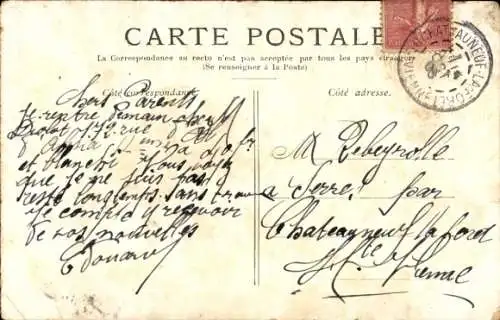 CARTE POSTALE
La Correspondance au recto n'est pas acceptée par tous les pays étrangers
(Se renseigner à la Poste)
Côté correspondance
Côté adresse.
CHATEAUNEUF-LA-FORET
Chers Parents
Je rentre demain chez
rue
et Blanche
que je ne suis pas
resté longtemps sans
Je compte y recevoir
de vos nouvelles
Edouard
M Rebeyrolle
a Serre par
Chateauneuf la foret
Hte Vienne